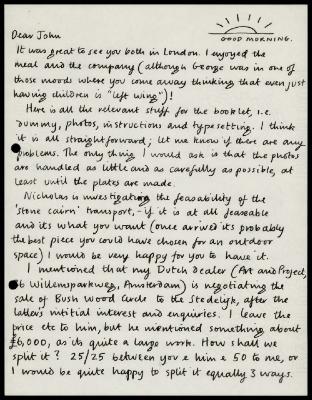 GOOD MORNING.
Dear John
It was great to see you both in London. I enjoyed the
meal and the company (although George was in one of
those moods where you come away thinking that even just
having children is "left wing")!
Here is all the relevant stuff for the booklet, i.e.
dummy, photos, instructions and typesetting. I think
it is all straightforward; let me know if there are any
problems. The only thing I would ask is that the photos
are handled as little and as carefully as possible, at
least until the plates are made.
Nicholas is investigating the feasability of the
'stone cairn' transport, - if it is at all feasable
and its what you want (once arrived its probably
the best piece you could have chosen for an outdoor
space) I would be very happy for you to have it.
I mentioned that my Dutch Dealer (Art and Project,
36 Willemsparkweg, Amsterdam) is negotiating the
sale of Bush Wood Circle to the Stedelijk, after the
latters intitial interest and enquiries. I leave the
price etc to him, but he mentioned something about
£6,000, as its quite a large work. How shall we
split it? 25/25 between you & him & 50 to me, or
I would be quite happy to split it equally 3 ways.